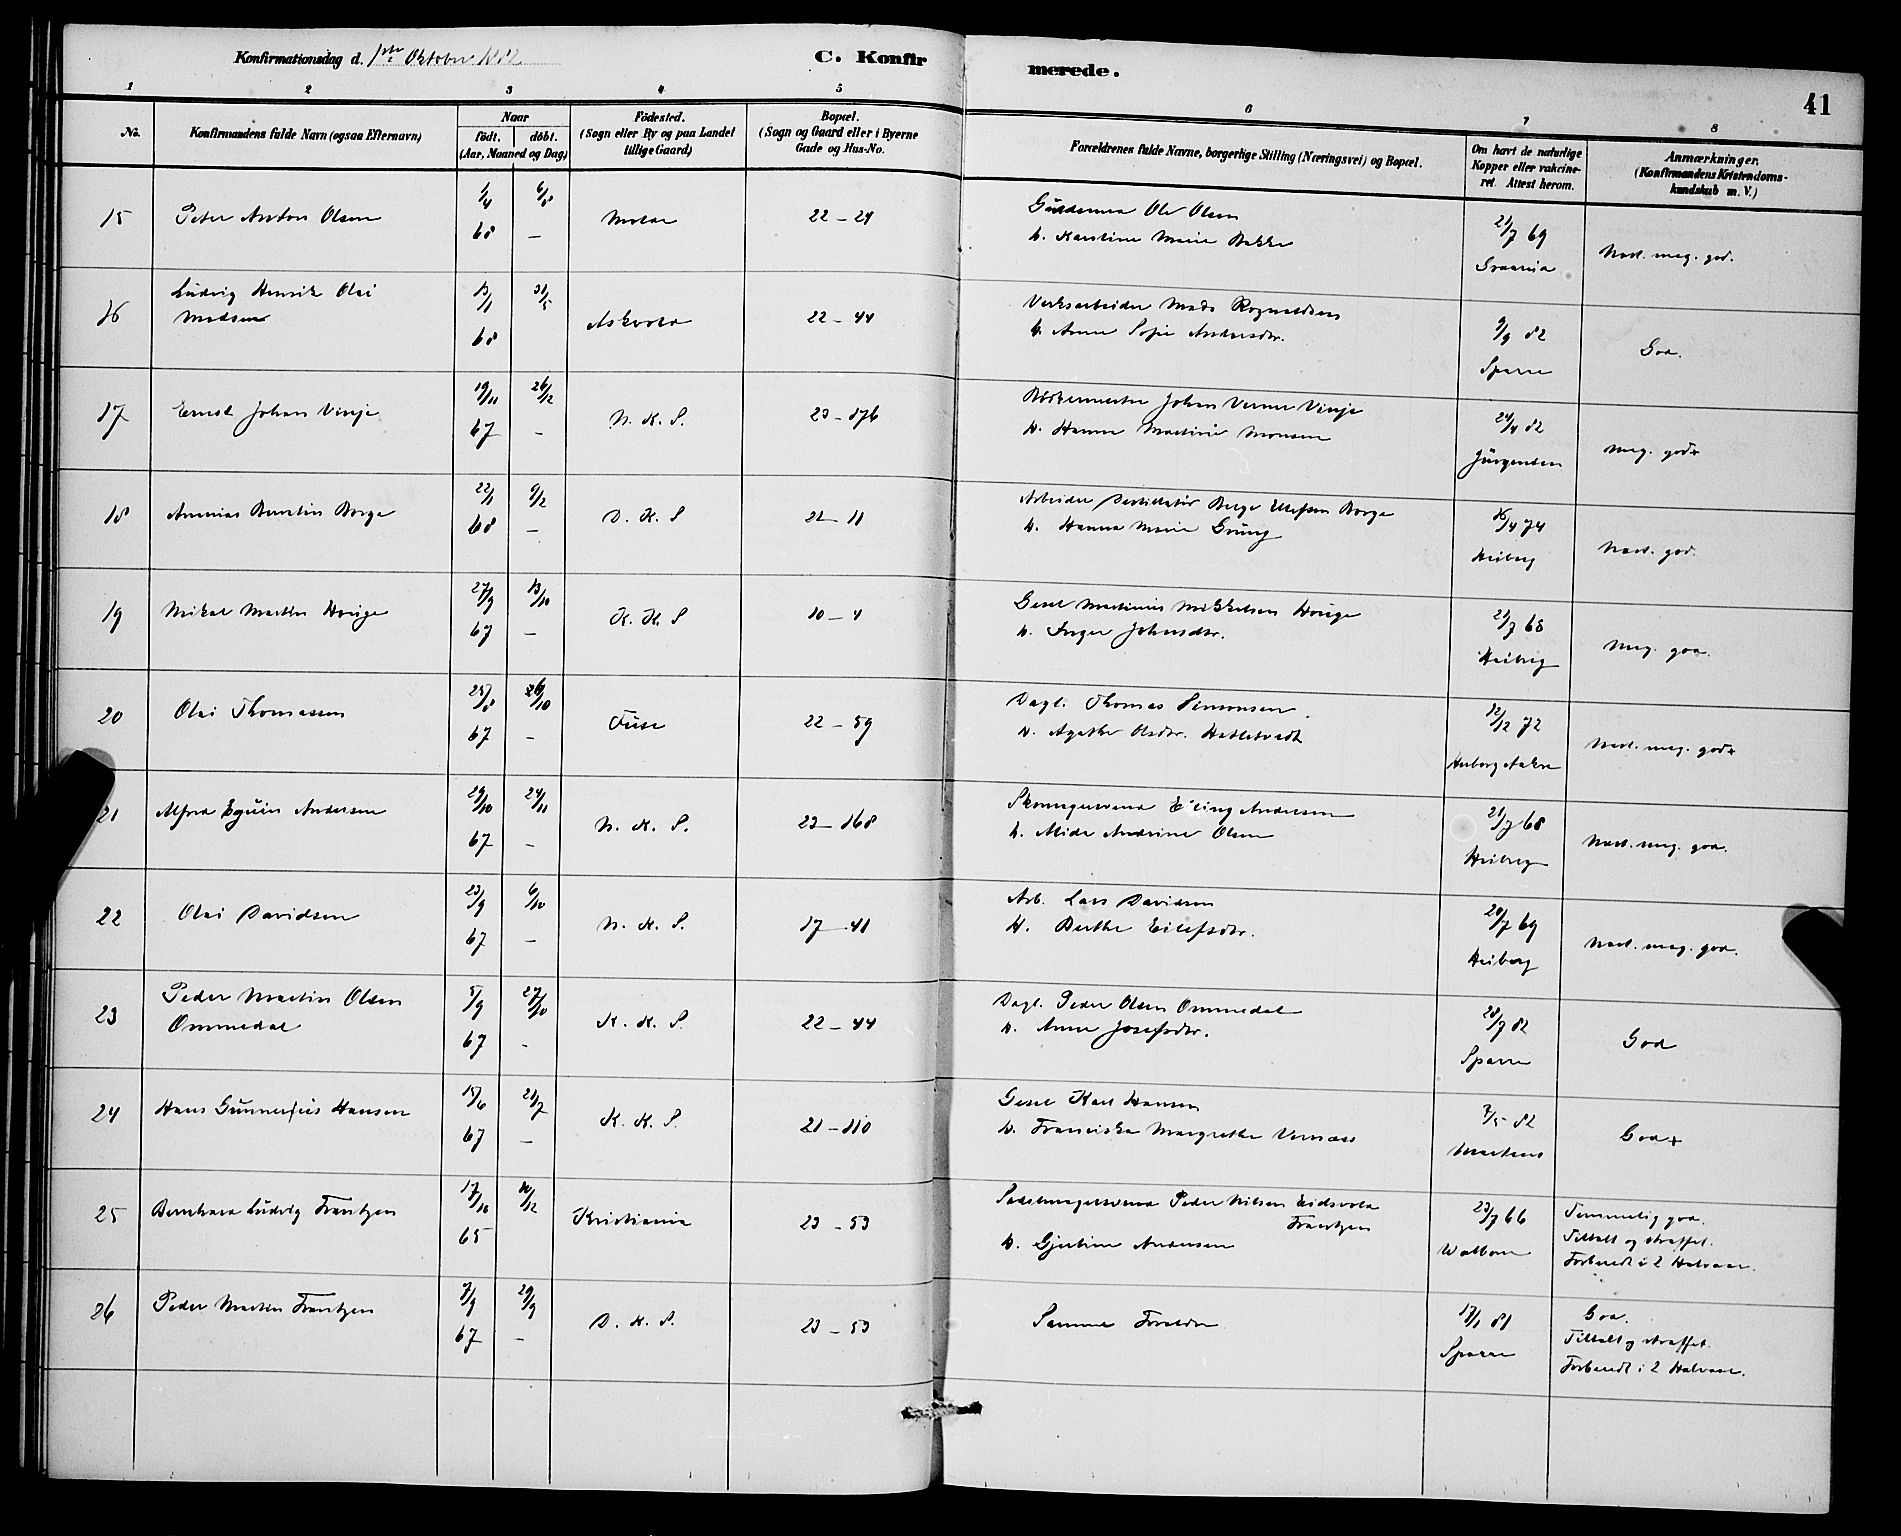 Konfirmationsdag d. 1ste Oktober 1882
C. Konfirmerede.
41
1 2 3 4 5 6 7 8
No.
Konfirmandens fulde Navn (ogsaa Efternavn)
Naar
födt. döbt.
(Aar, Maaned og Dag)
Födested.
(Sogn eller By og paa Landet
tillige Gaard)
Bopæl.
(Sogn og Gaard eller i Byerne
Gade og Hus-No.
Forældrenes fulde Navne, borgerlige Stilling (Næringsvei) og Bopæl.
Om havt de naturlige
Kopper eller vakcine-
ret. Attest herom.
Anmærkninger.
(Konfirmandens Kristendoms-
kundskab m. V.)
15 Peter Anton Olsen 1/4 68 6/8 – Molde 22 – 24 Ole Olsen
h. Karstine Marie Bakke 21/7 69 Næst. meg. god.
16 Ludvig Henrik Olai
Madsen 13/1 68 31/5 Askvold 22 – 44 Verksarbeider Mads Rognaldsen
h. Anne Sofie Andersdtr. 9/9 82
Sparre God.
17 Ernst Johan Vinje 19/11 67 26/12 – N. K. S. 23 – 176 Bödkermester Johan Verner Vinje
h. Hanne Martine Monsen 24/4 82
Jürgensen Meg. god+
18 Ananias Berntin Borge 22/1 68 9/2 – D. K. S 22 – 11 Arbeider Borge
h. Hanna Marie Grung 16/4 74
Heiberg Næst. god.
19 Mikal Martin Houge 27/9 67 13/10 – K. K. S 10 – 4 Gesel Martinus Mikkelsen Houge
h. Inger Johnsdtr. 21/7 68
Heiberg Meg. god.
20 Olai Thomassen 25/8 67 26/10 – Fuse 22 – 59 Dagl. Thomas Simonsen
h. Agathe Olsdtr. Hatletvedt 12/12 72 Næst. meg. god+
21 Alfred Andersen 29/10 67 24/11 – N. K. S. 23 – 168 Skomagersvend Andersen
h. Andrine Olsen 21/7 68
Heiberg Næst. meg. god.
22 Olai Davidsen 23/9 67 6/10 – N. K. S. 17 – 41 Arb. Lars Davidsen
h. Berthe Eilefsdtr. 20/7 69
Heiberg Næst. meg. god.
23 Peder Martin Olsen
Ommedal 5/9 67 27/10 – K. K. S. 22 – 44 Dagl. Peder Olsen Ommedal
h. Anne Josefsdtr. 28/7 82
Sparre God
24 Hans Gunnerius Hansen 15/6 67 21/7 – K. K. S. 21 – 110 Gesel Karl Hansen
h. Franciska Margrethe 7/5 82 God+
25 Bernhard Ludvig Frantzen 17/10 65 10/12 Kristiania 23 – 53 Sadelmagersvend Peder Nilsen Eidsvold
Frantzen
h. Gjertine Andersen 23/7 66
Walbom Temmelig god.
Tiltalt og straffet.
Forberedt i 2 Halvaar.
26 Peder Martin Frantzen 7/9 67 29/9 – D. K. S. 23 – 53 Samme Forældre 17/1 81
Sparre God.
Tiltalt og straffet.
Forberedt i 2 Halvaar.